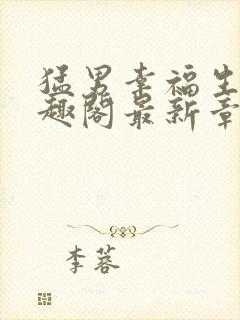 猛男幸福生
趣阁最新章
李蓉